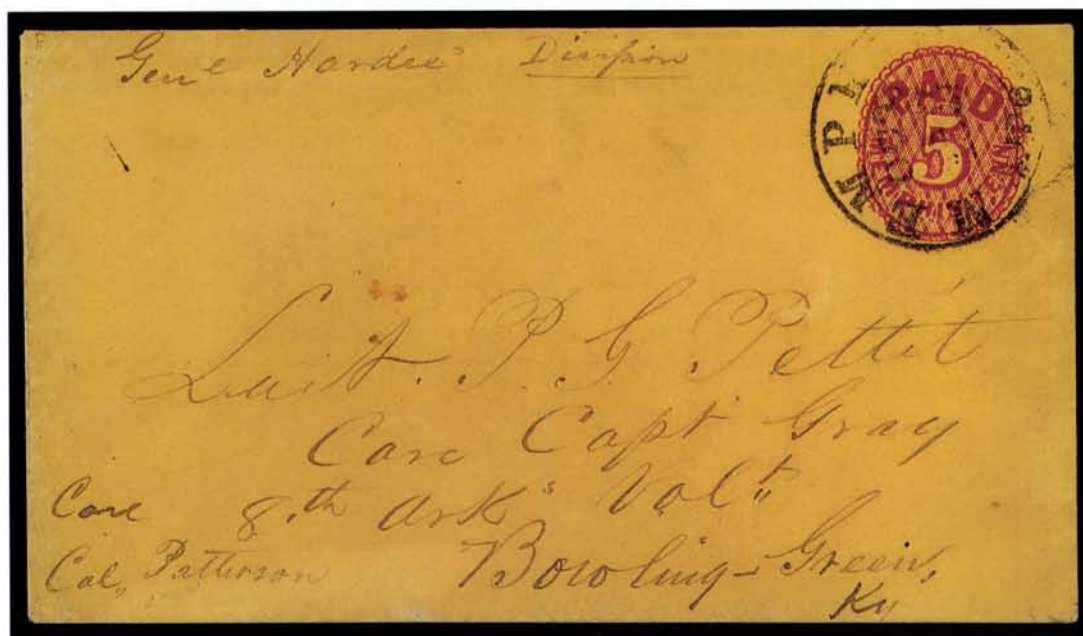 Genl Hardee's Division
PAID
5
MEMPHIS TENN
Leut. P. G Pettit
Care Capt Gray
Care 8.th Arks Volt
Col, Patterson Bowling-Green,
Ky